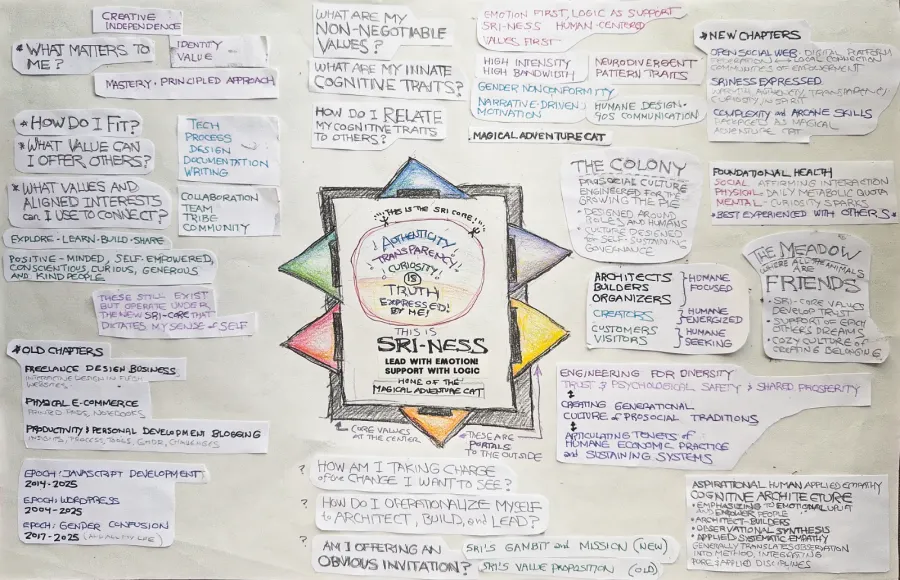 CREATIVE
INDEPENDENCE
* WHAT MATTERS TO
ME?
IDENTITY
VALUE
MASTERY · PRINCIPLED APPROACH
* HOW DO I FIT?
* WHAT VALUE CAN
I OFFER OTHERS?
TECH
PROCESS
DESIGN
DOCUMENTATION
WRITING
* WHAT VALUES AND
ALIGNED INTERESTS
can I USE TO CONNECT?
COLLABORATION
TEAM
TRIBE
COMMUNITY
EXPLORE · LEARN · BUILD · SHARE
POSITIVE-MINDED, SELF-EMPOWERED,
CONSCIENTIOUS, CURIOUS, GENEROUS
AND KIND PEOPLE
THESE STILL EXIST
BUT OPERATE UNDER
THE NEW SRI-CORE THAT
DICTATES MY SENSE OF SELF
* OLD CHAPTERS
FREELANCE DESIGN BUSINESS
WEBSITES
PHYSICAL E-COMMERCE
NOTEBOOKS
PRODUCTIVITY & PERSONAL DEVELOPMENT BLOGGING
INSIGHTS, PROCESS, TOOLS, CHALLENGES
EPOCH: JAVASCRIPT DEVELOPMENT
2014-2025
EPOCH: WORDPRESS
2004-2025
EPOCH: GENDER CONFUSION
2017-2025
WHAT ARE MY
NON-NEGOTIABLE
VALUES?
WHAT ARE MY INNATE
COGNITIVE TRAITS?
HOW DO I RELATE
MY COGNITIVE TRAITS
TO OTHERS?
EMOTION FIRST, LOGIC AS SUPPORT
SRI-NESS HUMAN-CENTERED
VALUES FIRST
HIGH INTENSITY
HIGH BANDWIDTH
NEURODIVERGENT
PATTERN TRAITS
GENDER NONCONFORMITY
NARRATIVE-DRIVEN
MOTIVATION
HUMANE DESIGN ·
90S COMMUNICATION
MAGICAL ADVENTURE CAT
THIS IS THE SRI CORE!
AUTHENTICITY
TRANSPARENCY
CURIOSITY
IS
TRUTH
EXPRESSED!
BY ME!
THIS IS
SRI-NESS
LEAD WITH EMOTION!
SUPPORT WITH LOGIC
HOME OF THE
MAGICAL ADVENTURE CAT
CORE VALUES
AT THE CENTER
THESE ARE
PORTALS
TO THE OUTSIDE
? HOW AM I TAKING CHARGE
of the CHANGE I WANT TO SEE?
? HOW DO I OPERATIONALIZE MYSELF
to ARCHITECT, BUILD, and LEAD?
? AM I OFFERING AN
OBVIOUS INVITATION?
SRI'S GAMBIT and MISSION (NEW)
SRI'S VALUE PROPOSITION (OLD)
* NEW CHAPTERS
OPEN SOCIAL WEB · DIGITAL PLATFORM
FEDERATION LOCAL CONNECTION
COMMUNITIES OF EMPOWERMENT
SRINESS EXPRESSED
AGENCY, TRANSPARENCY,
CURIOSITY, IN SPIRIT
COMPLEXITY and ARCANE SKILLS
AS MAGICAL
ADVENTURE CAT
THE COLONY
PROSOCIAL CULTURE
ENGINEERED FOR THE
GROWING THE PIE
• DESIGNED AROUND
ROLES AND HUMANS
• CULTURE DESIGNED
BY SELF-SUSTAINING
GOVERNANCE
FOUNDATIONAL HEALTH
SOCIAL · AFFIRMING INTERACTION
PHYSICAL · DAILY METABOLIC QUOTA
MENTAL · CURIOSITY SPARKS
* BEST EXPERIENCED WITH OTHERS *
ARCHITECTS
BUILDERS
ORGANIZERS
HUMANE
FOCUSED
CREATORS
HUMANE
ENERGIZED
CUSTOMERS
VISITORS
HUMANE
SEEKING
THE MEADOW
WHERE ALL THE ANIMALS
ARE
FRIENDS
• SRI-CORE VALUES
DEVELOP TRUST
• SUPPORT OF EACH
OTHERS DREAMS
• COZY CULTURE OF
CREATING BELONGING
ENGINEERING FOR DIVERSITY
TRUST & PSYCHOLOGICAL SAFETY & SHARED PROSPERITY
CREATING GENERATIONAL
CULTURE of PROSOCIAL TRADITIONS
ARTICULATING TENETS of
HUMANE ECONOMIC PRACTICE
and SUSTAINING SYSTEMS
ASPIRATIONAL HUMAN APPLIED EMPATHY
COGNITIVE ARCHITECTURE
• EMPHASIZING EMOTIONAL
EMPOWER PEOPLE
• ARCHITECT-BUILDERS
• OBSERVATIONAL SYNTHESIS
• APPLIED SYSTEMATIC EMPATHY
GENERALLY TRANSLATES OBSERVATION
INTO METHOD, INTEGRATING
PURE & APPLIED DISCIPLINES